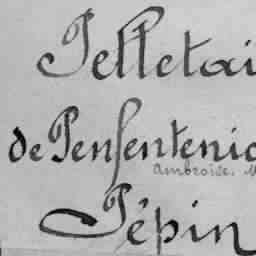 Pelletai
de Penfentenio
Ambroise. M
Pépin